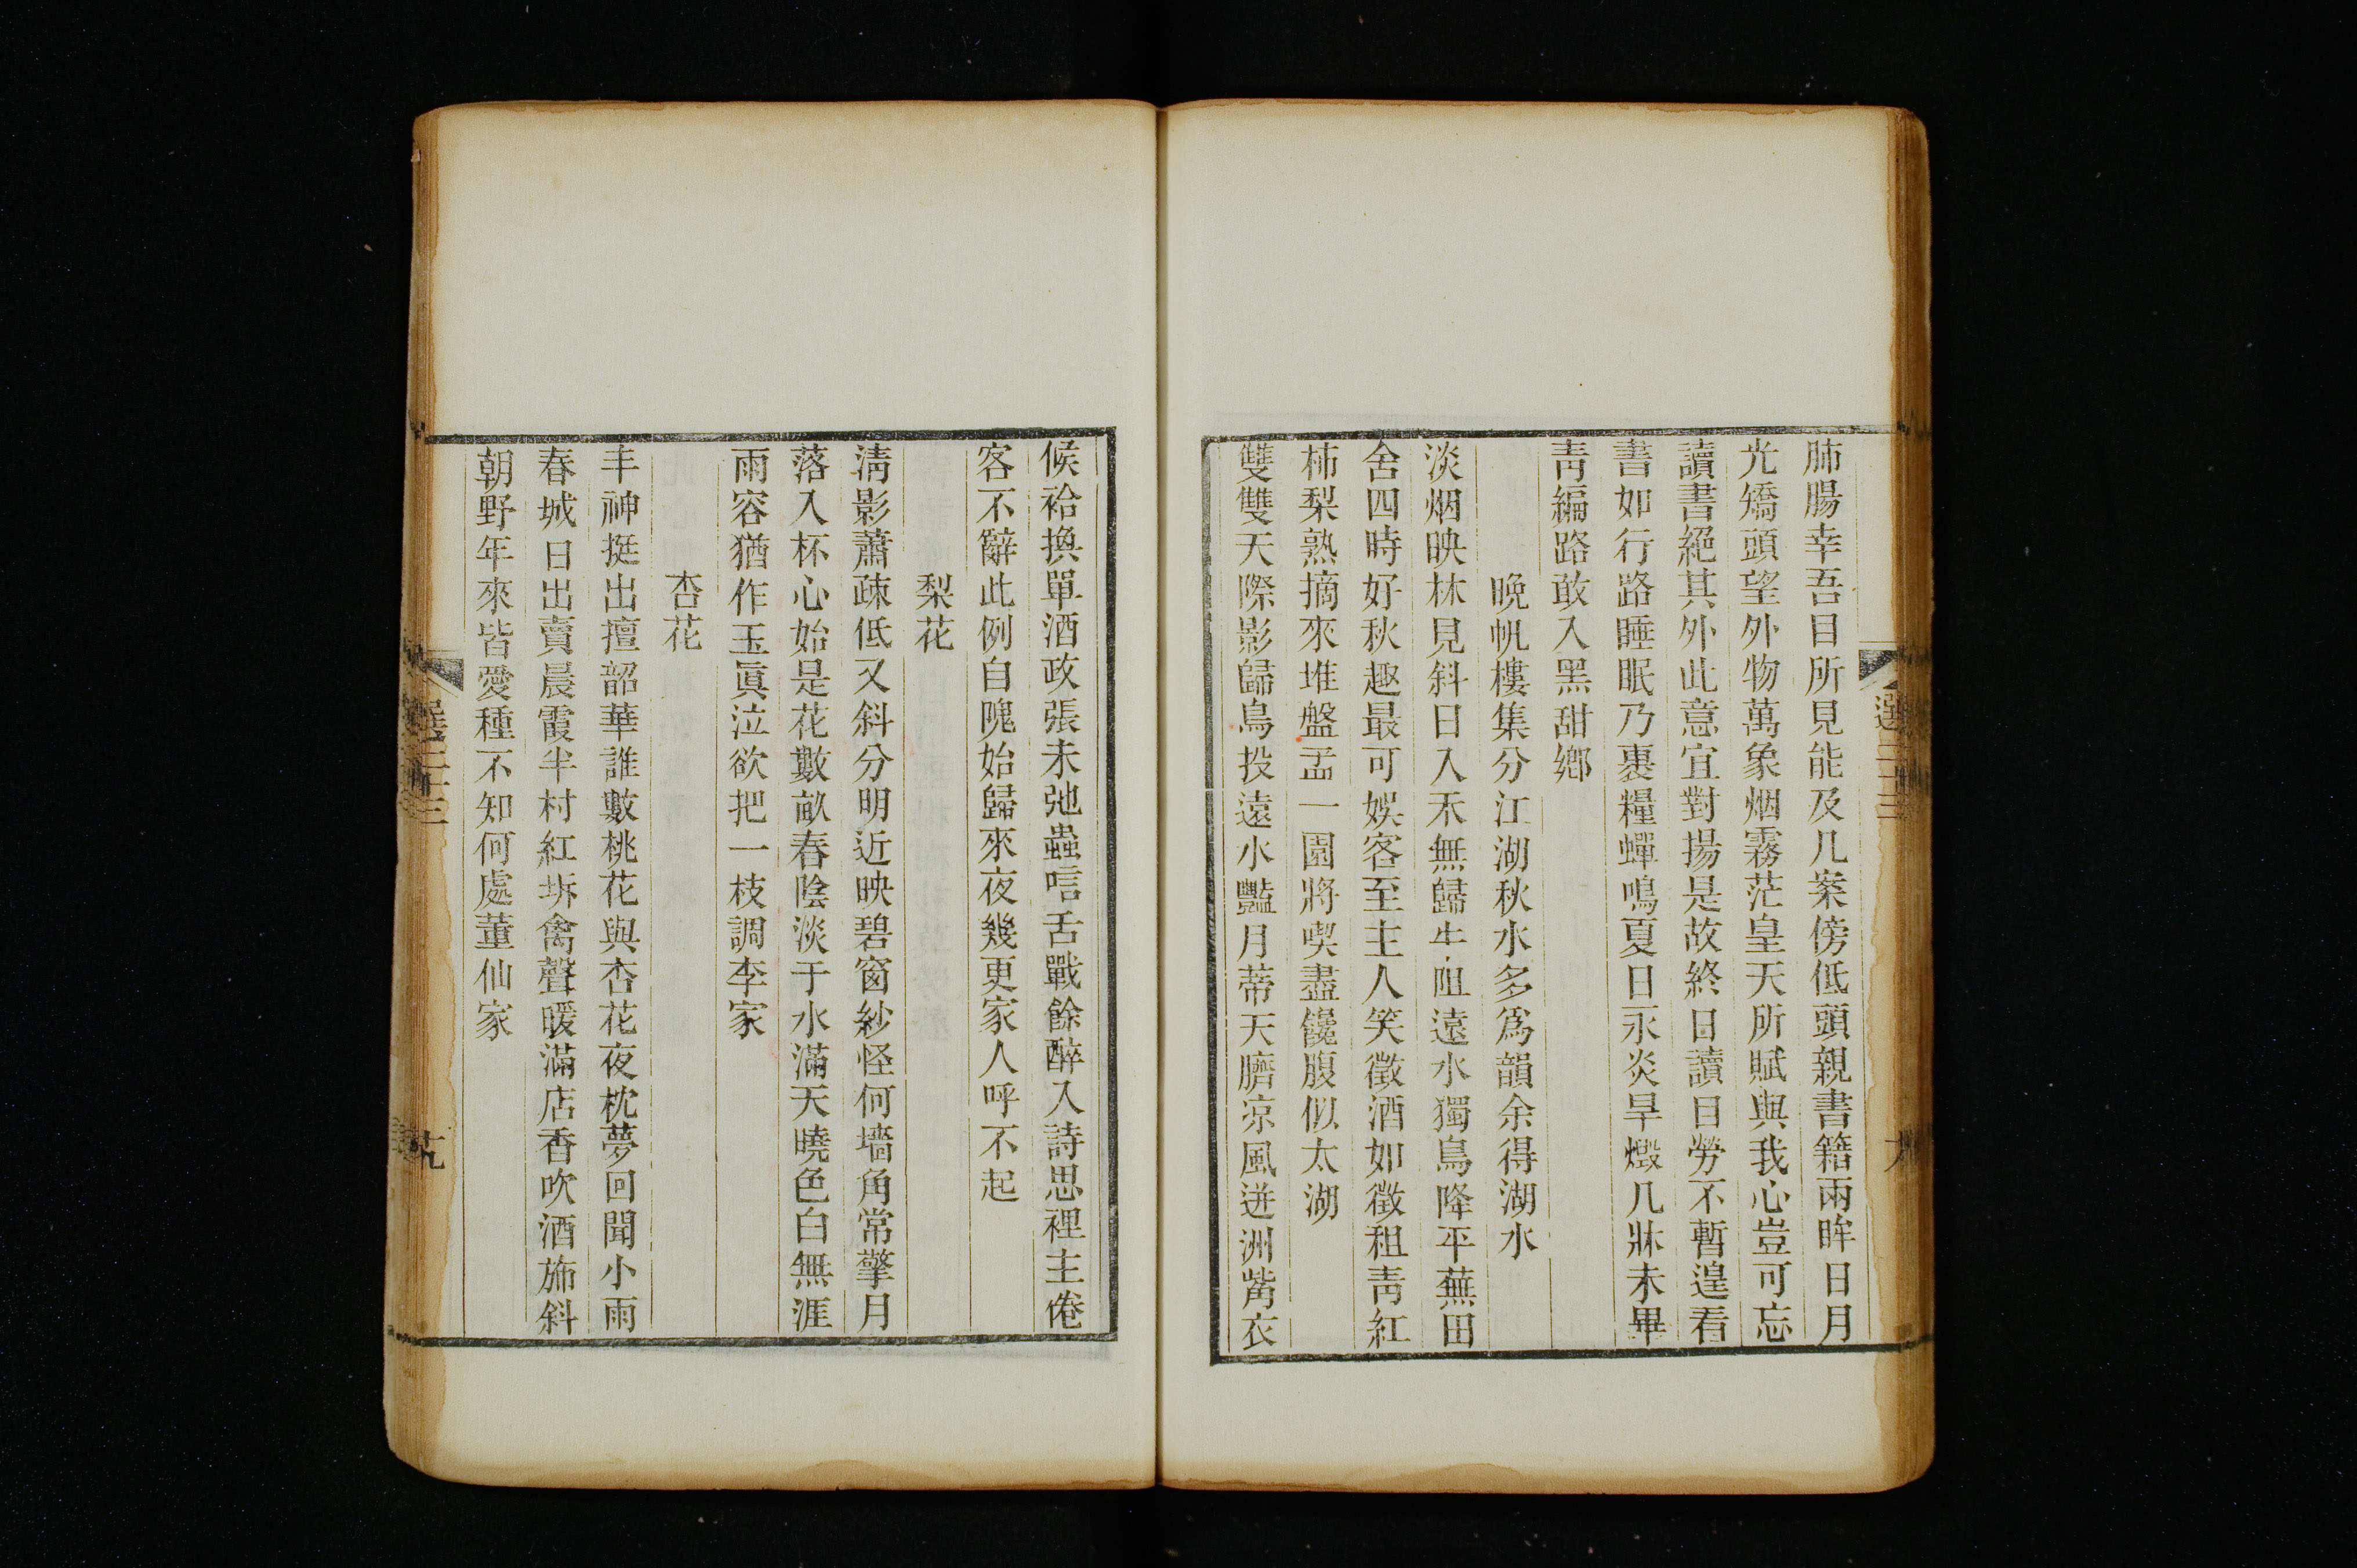 肺腸幸吾目所見能及几案傍低頭親書籍兩眸日月
光矯頭望外物萬象烟霧茫皇天所賦與我心豈可忘
讀書絕其外此意宜對揚是故終日讀日勞不暫遑看
書如行路睡眠乃裹糧蟬鳴夏日永炎旱燬几牀未畢
靑編路敢入黑甜鄕
晩帆樓集分江湖秋水多爲韻余得湖水
淡烟映林見斜日入禾無歸牛阻遠水獨鳥降平蕪田
舍四時好秋趣最可娛客至主人笑徵酒如徵租靑紅
柿梨熟摘來堆盤盂一園將喫盡饞腹似太湖
雙雙天際影歸鳥投遠水豔月蒂天臍涼風迸洲觜衣
選二十三
候袷換單酒政張未弛蟲唁舌戰餘醉入詩思裡主倦
客不辭此例自隗始歸來夜幾更家人呼不起
梨花
淸影蕭疎低又斜分明近映碧窗紗怪何墻角常擎月
落入杯心始是花數畝春陰淡于水滿天曉色白無涯
雨容猶作玉眞泣欲把一枝調李家
杏花
丰神挺出擅韶華誰數桃花與杏花夜枕夢回聞小雨
春城日出賣晨霞半村紅坼禽聲暖滿店香吹酒斾斜
朝野年來皆愛種不知何處董仙家
選二十三